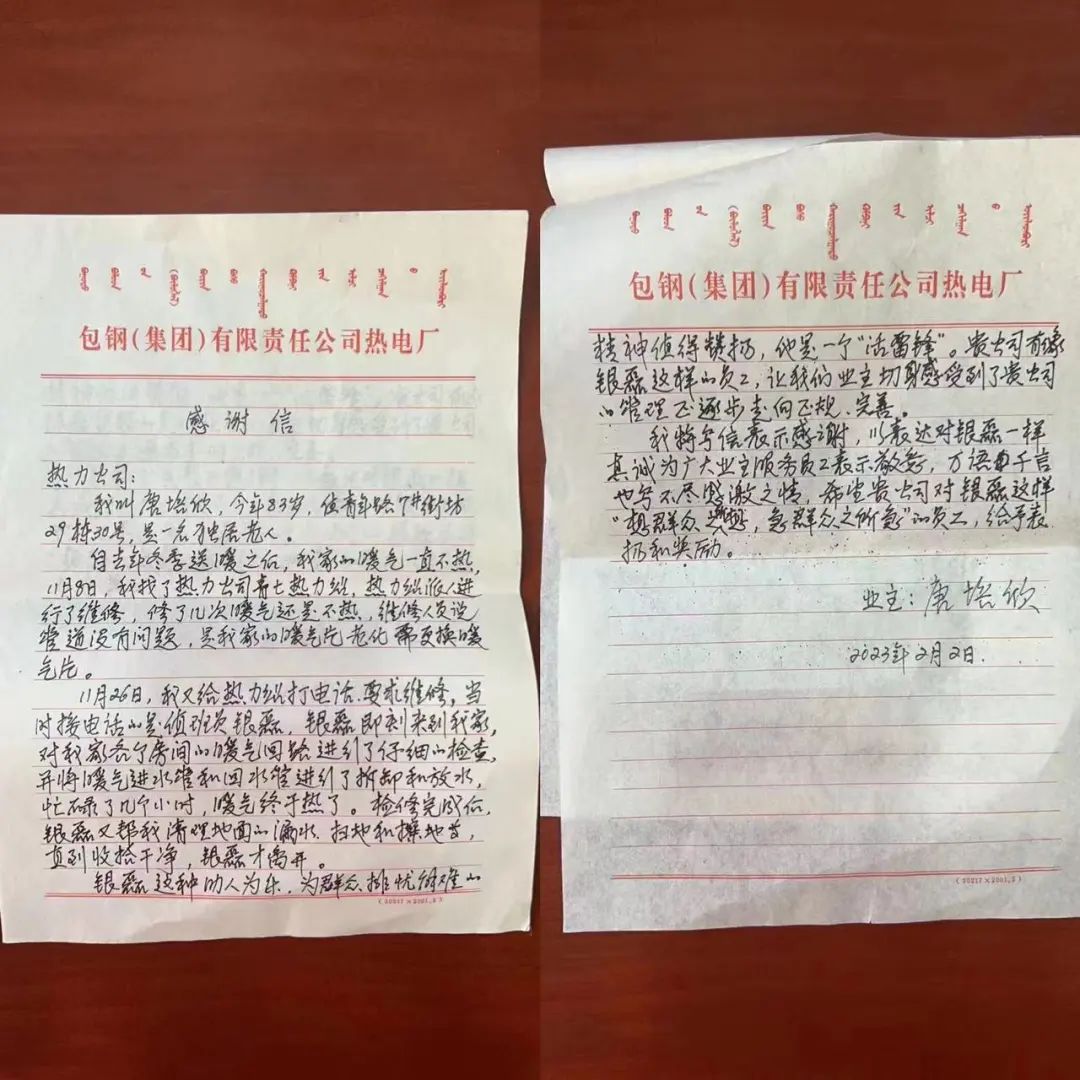 包钢(集团)有限责任公司热电厂
感谢信
热力公司:
我叫唐培欣,今年83岁,住青年路7#街坊
29栋30号,是一名独居老人。
自去年冬季送暖之后,我家的暖气一直不热,
11月8日,我找了热力公司青七热力站,热力站派人进
行了维修,修了几次暖气还是不热,维修人员说
管道没有问题,是我家的暖气片老化需更换暖
气片。
11月26日,我又给热力站打电话要求维修,当
时接电话的是值班员银磊,银磊即刻来到我家,
对我家各个房间的暖气回路进行了仔细的检查,
并将暖气进水管和回水管进行了拆卸和放水,
忙碌了几个小时,暖气终于热了。检修完成后,
银磊又帮我清理地面的漏水、扫地和擦地等,
直到收拾干净,银磊才离开。
银磊这种助人为乐,为群众排忧解难的
(30217×2001.2)
包钢(集团)有限责任公司热电厂
精神值得赞扬,他是一个“活雷锋”。贵公司有像
银磊这样的员工,让我们业主切身感受到了贵公司
的管理正逐步走向正规、完善。
我特写信表示感谢,以表达对银磊一样
真诚为广大业主服务员工表示敬意,万语千言
也写不尽感激之情,希望贵公司对银磊这样
“想群众所想,急群众之所急”的员工,给予表
扬和奖励。
业主:唐培欣
2023年2月2日.
(30217×2001.2)